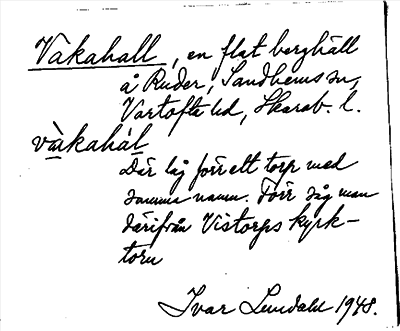 Vakahall, en flat berghäll
å Ruder, Sandhems sn,
Vartofta hd, Skarab. l.
vàkahál
Där låg förr ett torp med
samma namn. Förr såg man
därifrån Vistorps kyrk-
torn
Ivar Lundahl 1948.